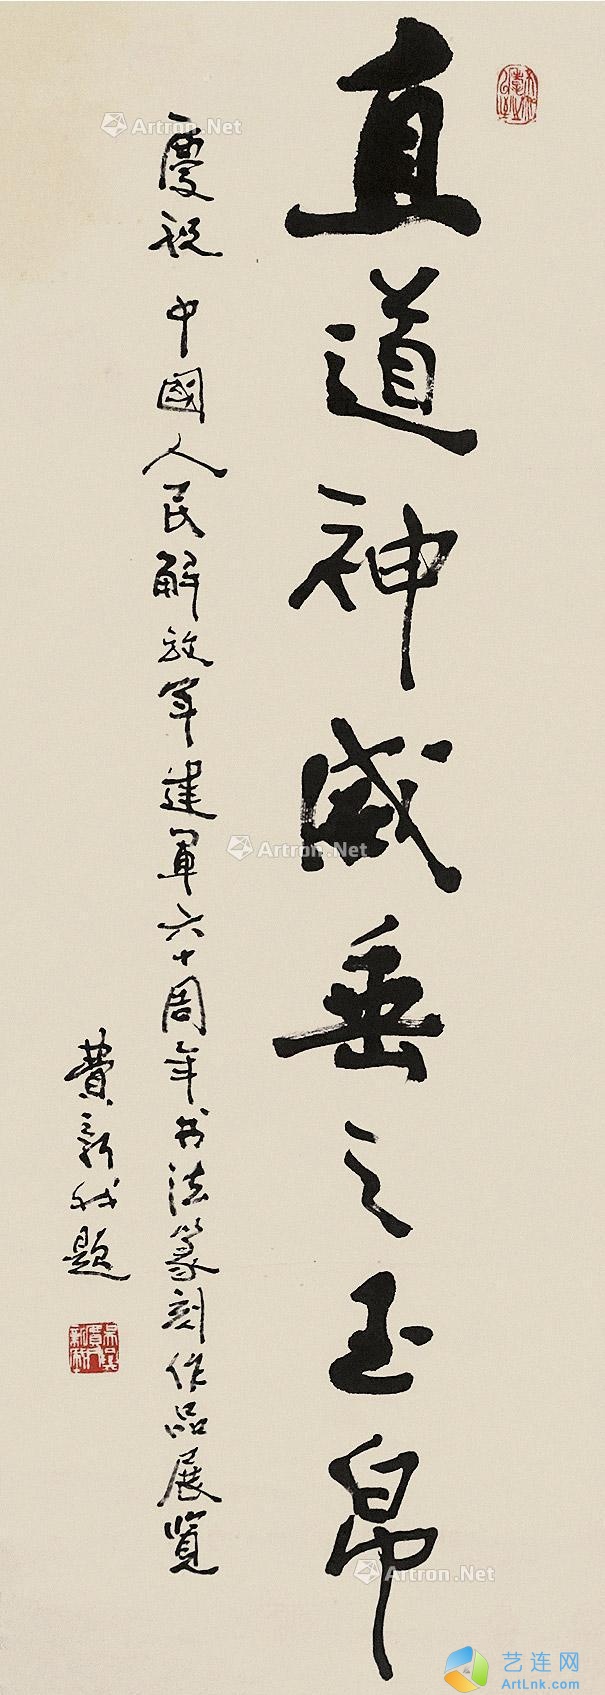 直道神威垂之玉帛
慶祝中國人民解放軍建軍六十周年书法篆刻作品展览
費新我題
Artron.Net
Artron.Net
Artron.Net
艺连网
ArtLnk.com